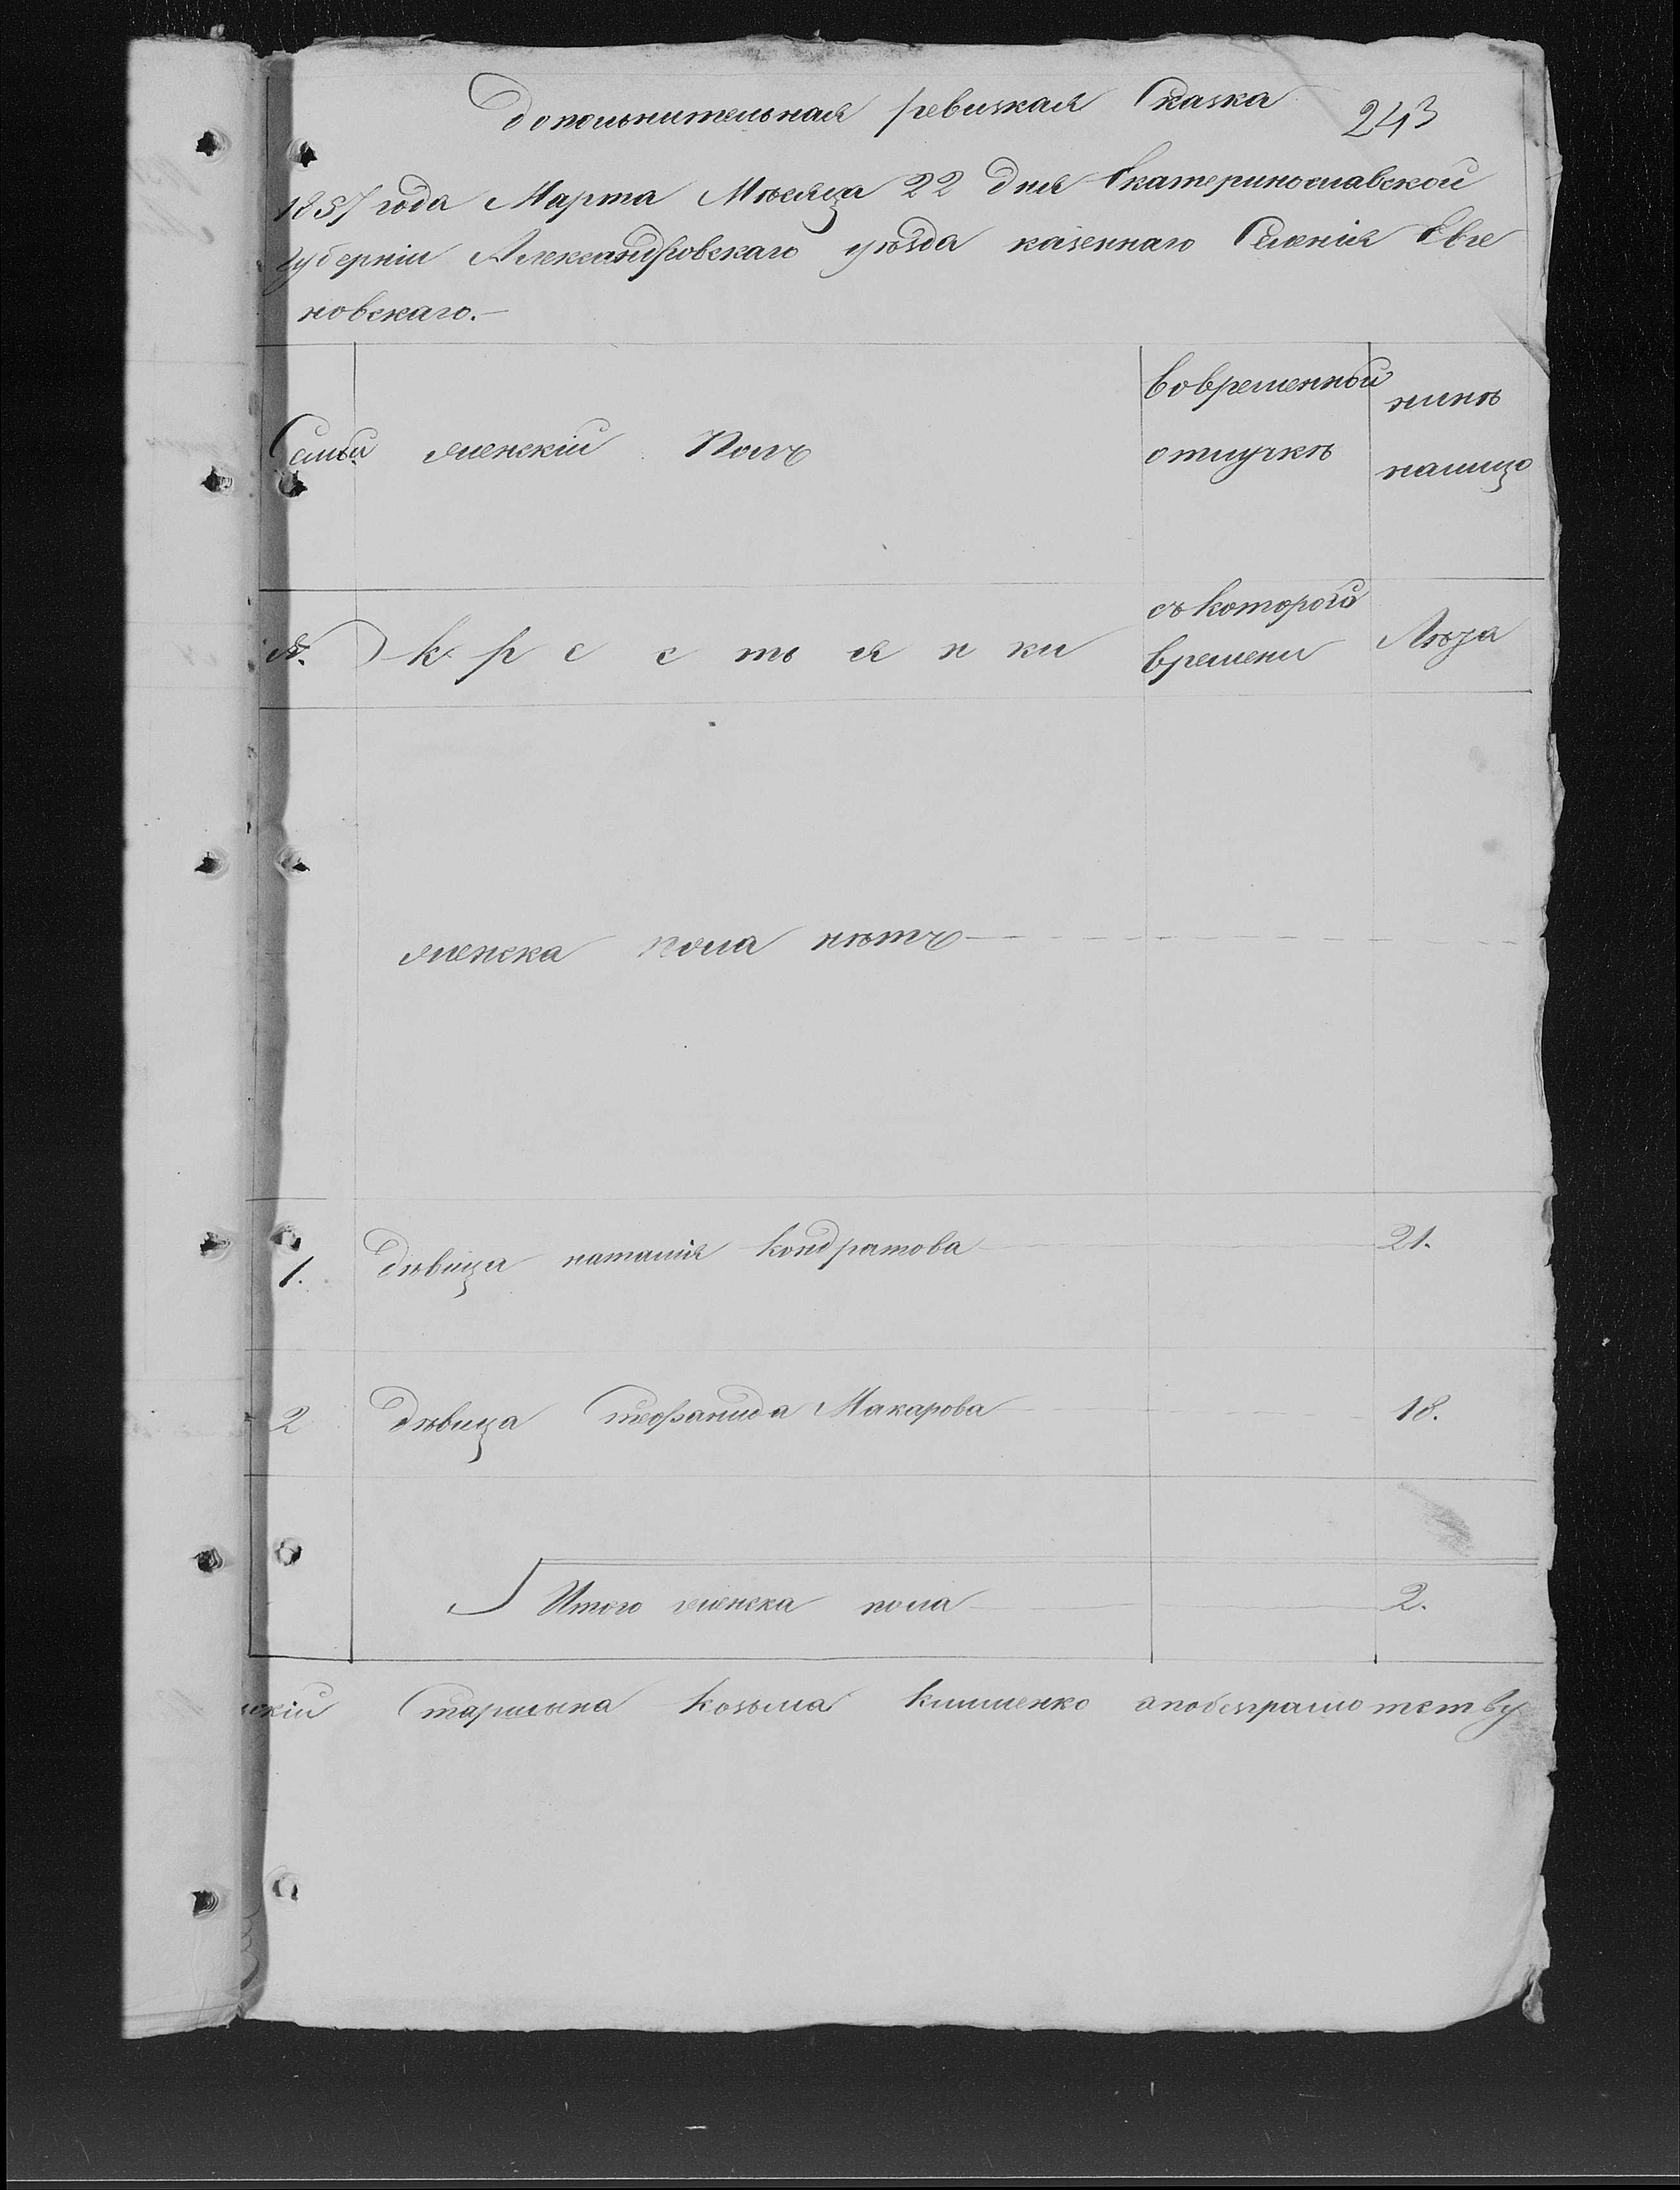 Дополнительная ревизкая Сказка 243
1857 года Марта Месяца 22 дня Екатеринославской
Губерніи Александровскаго уѣзда казеннаго Селенія Евге
новскаго.—
Семьи женскій Полъ вовременной отлучкѣ нинѣ налицо
№. крестьянки съ которого времени Лѣта
женска пола нѣтъ
1. дѣвица наталія кондратова 21.
2 дѣвица Теофанида Макарова 18.
Итого женска пола 2.
скій Старшына козьма клименко апобезграмотству